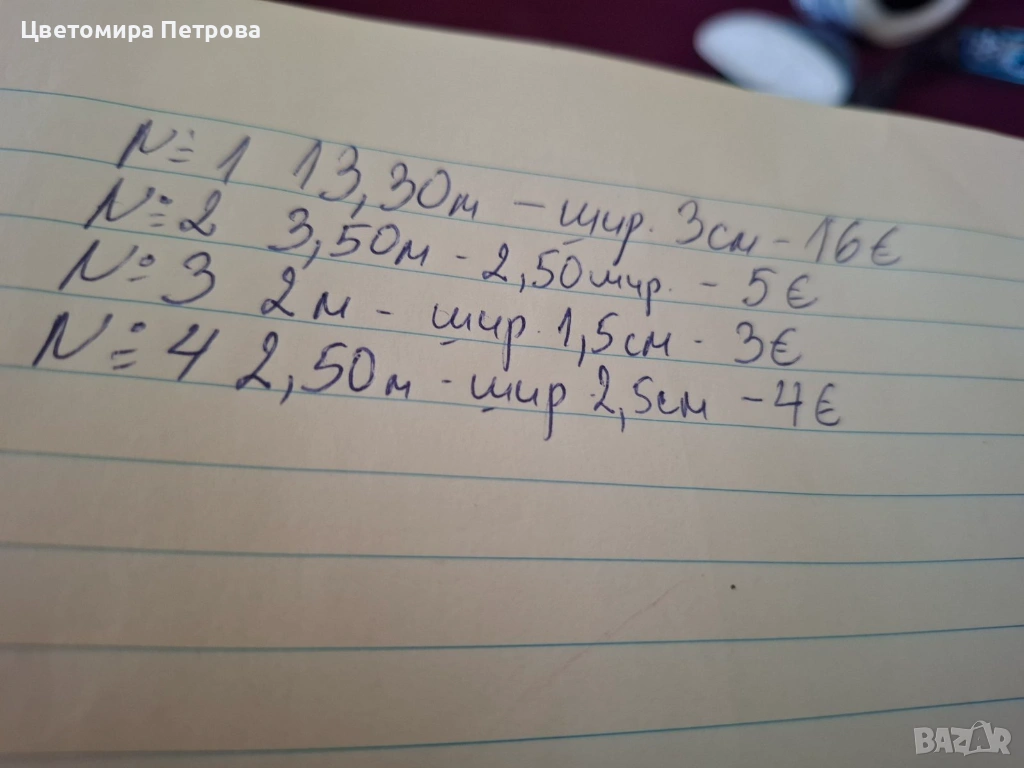 Цветомира Петрова
№ 1 13,30м – шир. 3см – 16€
№ 2 3,50м - 2,50шир. - 5€
№ 3 2м - шир. 1,5см - 3€
№ 4 2,50м - шир 2,5см - 4€
BAZAR